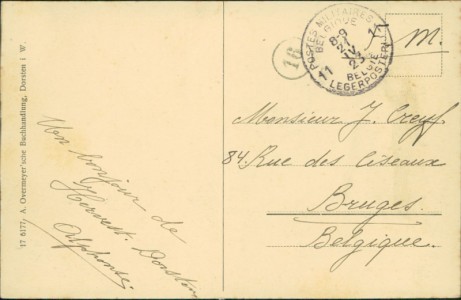 17 6177, A. Overmeyer'sche Buchhandlung, Dorsten i W.
Un bonjour de
Hervest-Dorsten
Alphonse
16
POSTES MILITAIRES
BELGIQUE
8-9
IV
23
11
11
BELGIË
LEGERPOSTERIJ
M.
Monsieur J. Creyf.
84 Rue des Ciseaux
Bruges.
Belgique.